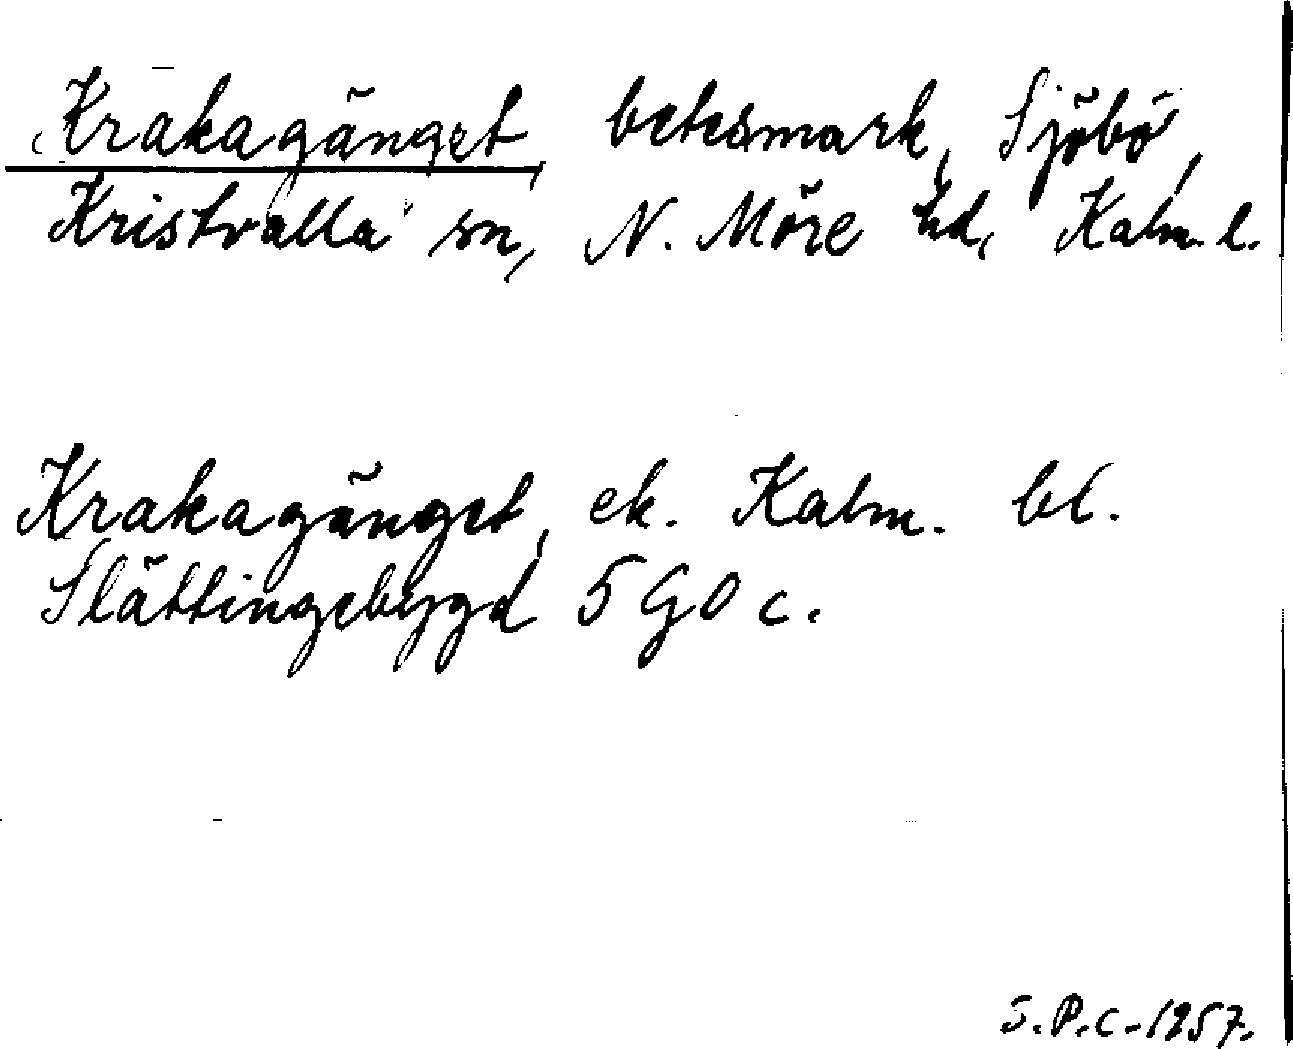 Krakagänget, betesmark, Sjöbo,
Kristvalla sn, N. Möre hd, Kalm. l.
Krakagänget, ek. Kalm. bl.
Slättingebygd 5 G O c.
S.P.C-1957.